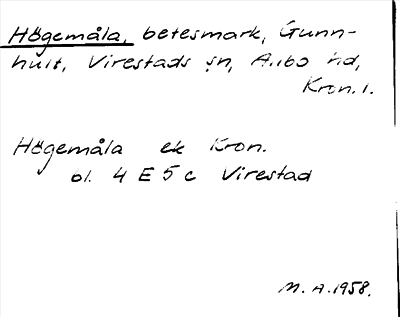 Högemåla, betesmark, Gunn-
hult, Virestads sn, A.lbo hd,
Kron. l.
Högemåla ek Kron.
bl. 4 E 5 c Virestad
M. A. 1958.